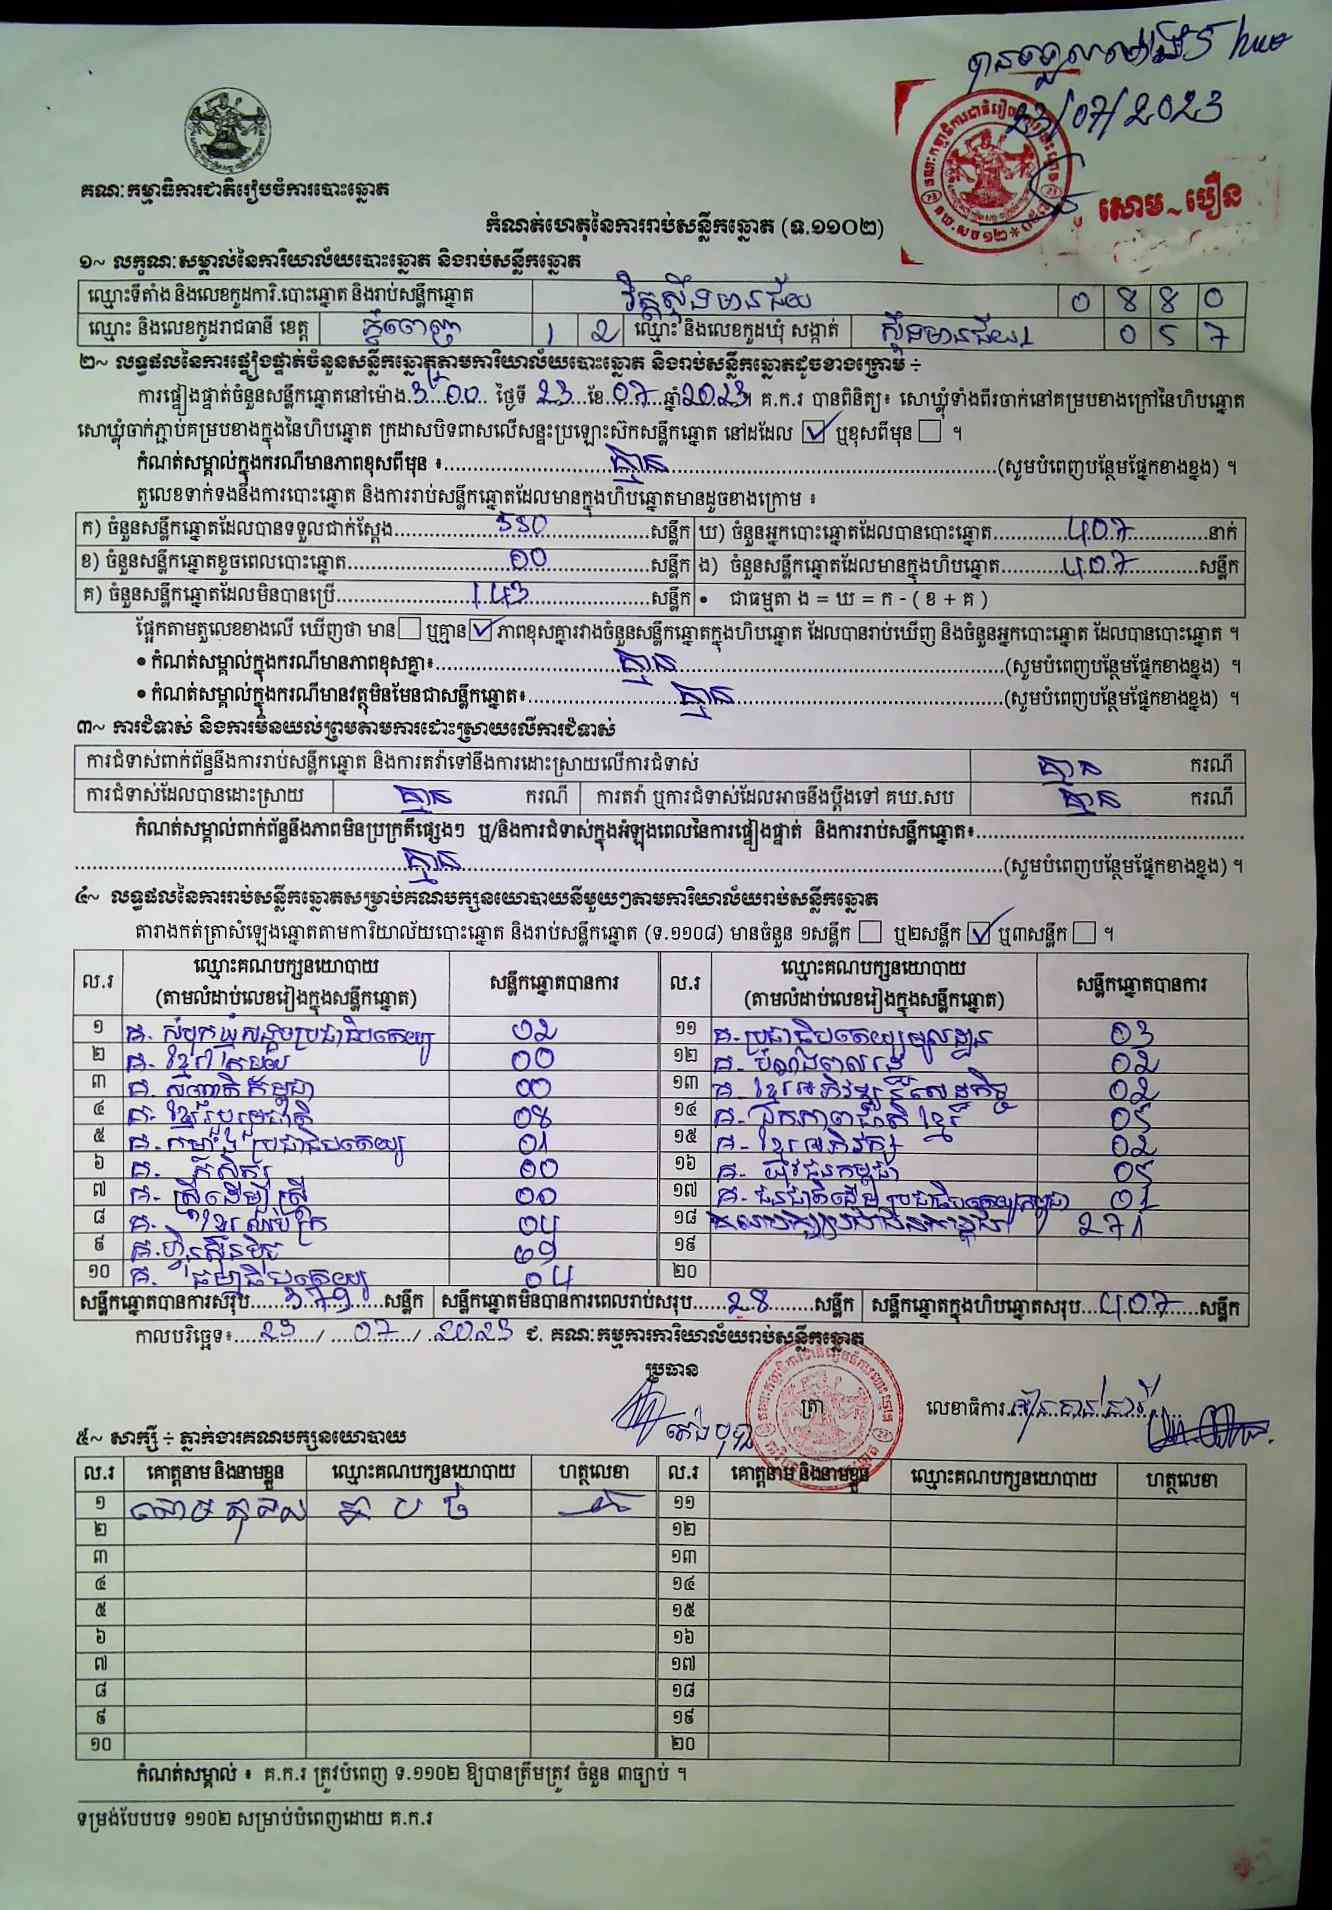 23/07/2023
គណៈកម្មាធិការជាតិរៀបចំការបោះឆ្នោត
សោម~បឿន
កំណត់ហេតុនៃការរាប់សន្លឹកឆ្នោត (ទ.១១០២)
១~ លក្ខណៈសម្គាល់នៃការិយាល័យបោះឆ្នោត និងរាប់សន្លឹកឆ្នោត
ឈ្មោះទីតាំង និងលេខកូដការិ.បោះឆ្នោត និងរាប់សន្លឹកឆ្នោត វត្តស្ទឹងមានជ័យ 0 8 8 0
ឈ្មោះ និងលេខកូដរាជធានី ខេត្ត ភ្នំពេញ 1 2 ឈ្មោះ និងលេខកូដឃុំ សង្កាត់ ស្ទឹងមានជ័យ1 0 5 7
២~ លទ្ធផលនៃការផ្ទៀងផ្ទាត់ចំនួនសន្លឹកឆ្នោតតាមការិយាល័យបោះឆ្នោត និងរាប់សន្លឹកឆ្នោតដូចខាងក្រោម ÷
ការផ្ទៀងផ្ទាត់ចំនួនសន្លឹកឆ្នោតនៅម៉ោង 3:00 ថ្ងៃទី 23 ខែ 07 ឆ្នាំ 2023 ។ គ.ក.រ បានពិនិត្យ៖ សោឃ្លុំទាំងពីរចាក់នៅគម្របខាងក្រៅនៃហិបឆ្នោត
សោឃ្លុំចាក់ភ្ជាប់គម្របខាងក្នុងនៃហិបឆ្នោត ក្រដាសបិទពាសលើសន្ទះប្រឡោះស៊កសន្លឹកឆ្នោត នៅដដែល ☑ ឬខុសពីមុន ☐ ។
កំណត់សម្គាល់ក្នុងករណីមានភាពខុសពីមុន ៖ គ្មាន (សូមបំពេញបន្ថែមផ្នែកខាងខ្នង) ។
តួលេខទាក់ទងនឹងការបោះឆ្នោត និងការរាប់សន្លឹកឆ្នោតដែលមានក្នុងហិបឆ្នោតមានដូចខាងក្រោម ៖
ក) ចំនួនសន្លឹកឆ្នោតដែលបានទទួលជាក់ស្តែង 550 សន្លឹក ឃ) ចំនួនអ្នកបោះឆ្នោតដែលបានបោះឆ្នោត 407 នាក់
ខ) ចំនួនសន្លឹកឆ្នោតខូចពេលបោះឆ្នោត 00 សន្លឹក ង) ចំនួនសន្លឹកឆ្នោតដែលមានក្នុងហិបឆ្នោត 407 សន្លឹក
គ) ចំនួនសន្លឹកឆ្នោតដែលមិនបានប្រើ 143 សន្លឹក • ជាធម្មតា ង = ឃ = ក - ( ខ + គ )
ផ្អែកតាមតួលេខខាងលើ ឃើញថា មាន ☐ ឬគ្មាន ☑ ភាពខុសគ្នារវាងចំនួនសន្លឹកឆ្នោតក្នុងហិបឆ្នោត ដែលបានរាប់ឃើញ និងចំនួនអ្នកបោះឆ្នោត ដែលបានបោះឆ្នោត ។
• កំណត់សម្គាល់ក្នុងករណីមានភាពខុសគ្នា៖ គ្មាន (សូមបំពេញបន្ថែមផ្នែកខាងខ្នង) ។
• កំណត់សម្គាល់ក្នុងករណីមានវត្ថុមិនមែនជាសន្លឹកឆ្នោត៖ គ្មាន (សូមបំពេញបន្ថែមផ្នែកខាងខ្នង) ។
៣~ ការជំទាស់ និងការមិនយល់ព្រមតាមការដោះស្រាយលើការជំទាស់
ការជំទាស់ពាក់ព័ន្ធនឹងការរាប់សន្លឹកឆ្នោត និងការតវ៉ាទៅនឹងការដោះស្រាយលើការជំទាស់ គ្មាន ករណី
ការជំទាស់ដែលបានដោះស្រាយ គ្មាន ករណី ការតវ៉ា ឬការជំទាស់ដែលអាចនឹងប្តឹងទៅ គឃ.សប គ្មាន ករណី
កំណត់សម្គាល់ពាក់ព័ន្ធនឹងភាពមិនប្រក្រតីផ្សេងៗ ឬ/និងការជំទាស់ក្នុងអំឡុងពេលនៃការផ្ទៀងផ្ទាត់ និងការរាប់សន្លឹកឆ្នោត៖
គ្មាន (សូមបំពេញបន្ថែមផ្នែកខាងខ្នង) ។
៤~ លទ្ធផលនៃការរាប់សន្លឹកឆ្នោតសម្រាប់គណបក្សនយោបាយនីមួយៗតាមការិយាល័យរាប់សន្លឹកឆ្នោត
តារាងកត់ត្រាសំឡេងឆ្នោតតាមការិយាល័យបោះឆ្នោត និងរាប់សន្លឹកឆ្នោត (ទ.១១០៨) មានចំនួន ១សន្លឹក ☐ ឬ២សន្លឹក ☑ ឬ៣សន្លឹក ☐ ។
ល.រ ឈ្មោះគណបក្សនយោបាយ (តាមលំដាប់លេខរៀងក្នុងសន្លឹកឆ្នោត) សន្លឹកឆ្នោតបានការ ល.រ ឈ្មោះគណបក្សនយោបាយ (តាមលំដាប់លេខរៀងក្នុងសន្លឹកឆ្នោត) សន្លឹកឆ្នោតបានការ
១ គ. សំបុកឃ្មុំសង្គមប្រជាធិបតេយ្យ 02 ១១ គ. ប្រជាធិបតេយ្យមូលដ្ឋាន 03
២ គ. ខ្មែររីករាយ 00 ១២ គ. 02
៣ គ. សញ្ជាតិកម្ពុជា 00 ១៣ គ. ខ្មែរអភិវឌ្ឍន៍សេដ្ឋកិច្ច 02
៤ គ. ខ្មែររួបរួមជាតិ 08 ១៤ គ. ឯកភាពជាតិខ្មែរ 05
៥ គ. កម្លាំងប្រជាធិបតេយ្យ 01 ១៥ គ. ខ្មែរអភិរក្ស 02
៦ គ. កសិករ 00 ១៦ គ. យុវជនកម្ពុជា 05
៧ គ. ស្ត្រីដើម្បីស្ត្រី 00 ១៧ គ. ជនជាតិដើមប្រជាធិបតេយ្យកម្ពុជា 01
៨ គ. ខ្មែរឈប់ក្រ 04 ១៨ គណបក្សប្រជាជនកម្ពុជា 271
៩ គ. ហ៊្វុនស៊ិនប៉ិច 69 ១៩
១០ គ. ធម្មាធិបតេយ្យ 04 ២០
សន្លឹកឆ្នោតបានការសរុប 379 សន្លឹក សន្លឹកឆ្នោតមិនបានការពេលរាប់សរុប 28 សន្លឹក សន្លឹកឆ្នោតក្នុងហិបឆ្នោតសរុប 407 សន្លឹក
កាលបរិច្ឆេទ៖ 23 / 07 / 2023 ជ. គណៈកម្មការការិយាល័យរាប់សន្លឹកឆ្នោត
ប្រធាន
ត្រា លេខាធិការ
៥~ សាក្សី ÷ ភ្នាក់ងារគណបក្សនយោបាយ
ល.រ គោត្តនាម និងនាមខ្លួន ឈ្មោះគណបក្សនយោបាយ ហត្ថលេខា ល.រ គោត្តនាម និងនាមខ្លួន ឈ្មោះគណបក្សនយោបាយ ហត្ថលេខា
១ ១១
២ ១២
៣ ១៣
៤ ១៤
៥ ១៥
៦ ១៦
៧ ១៧
៨ ១៨
៩ ១៩
១០ ២០
កំណត់សម្គាល់ ៖ គ.ក.រ ត្រូវបំពេញ ទ.១១០២ ឱ្យបានត្រឹមត្រូវ ចំនួន ៣ច្បាប់ ។
ទម្រង់បែបបទ ១១០២ សម្រាប់បំពេញដោយ គ.ក.រ